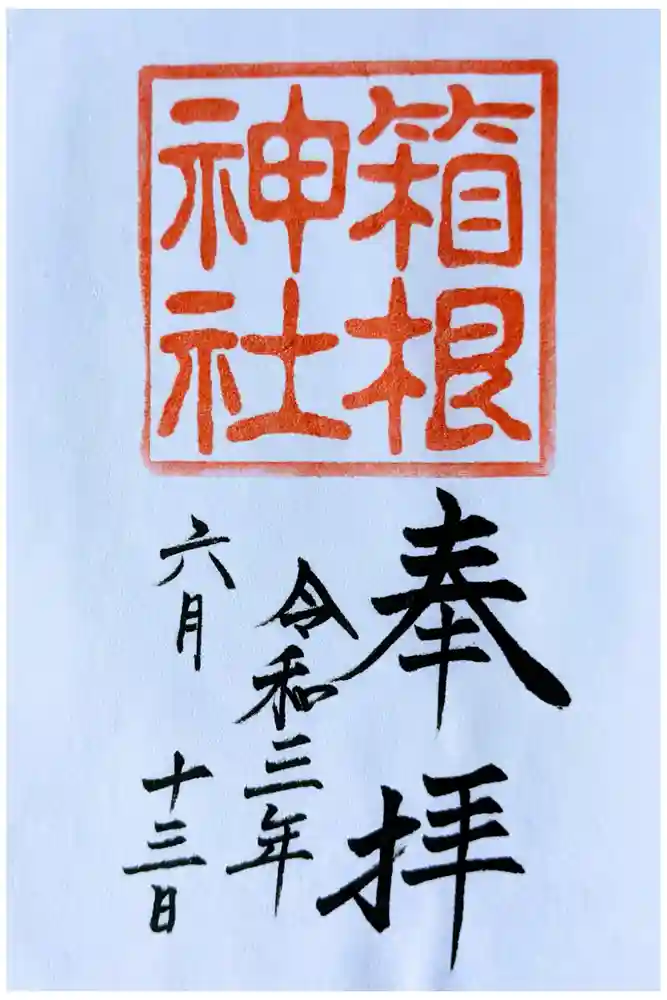 箱根
神社
奉拝
令和三年
六月十三日